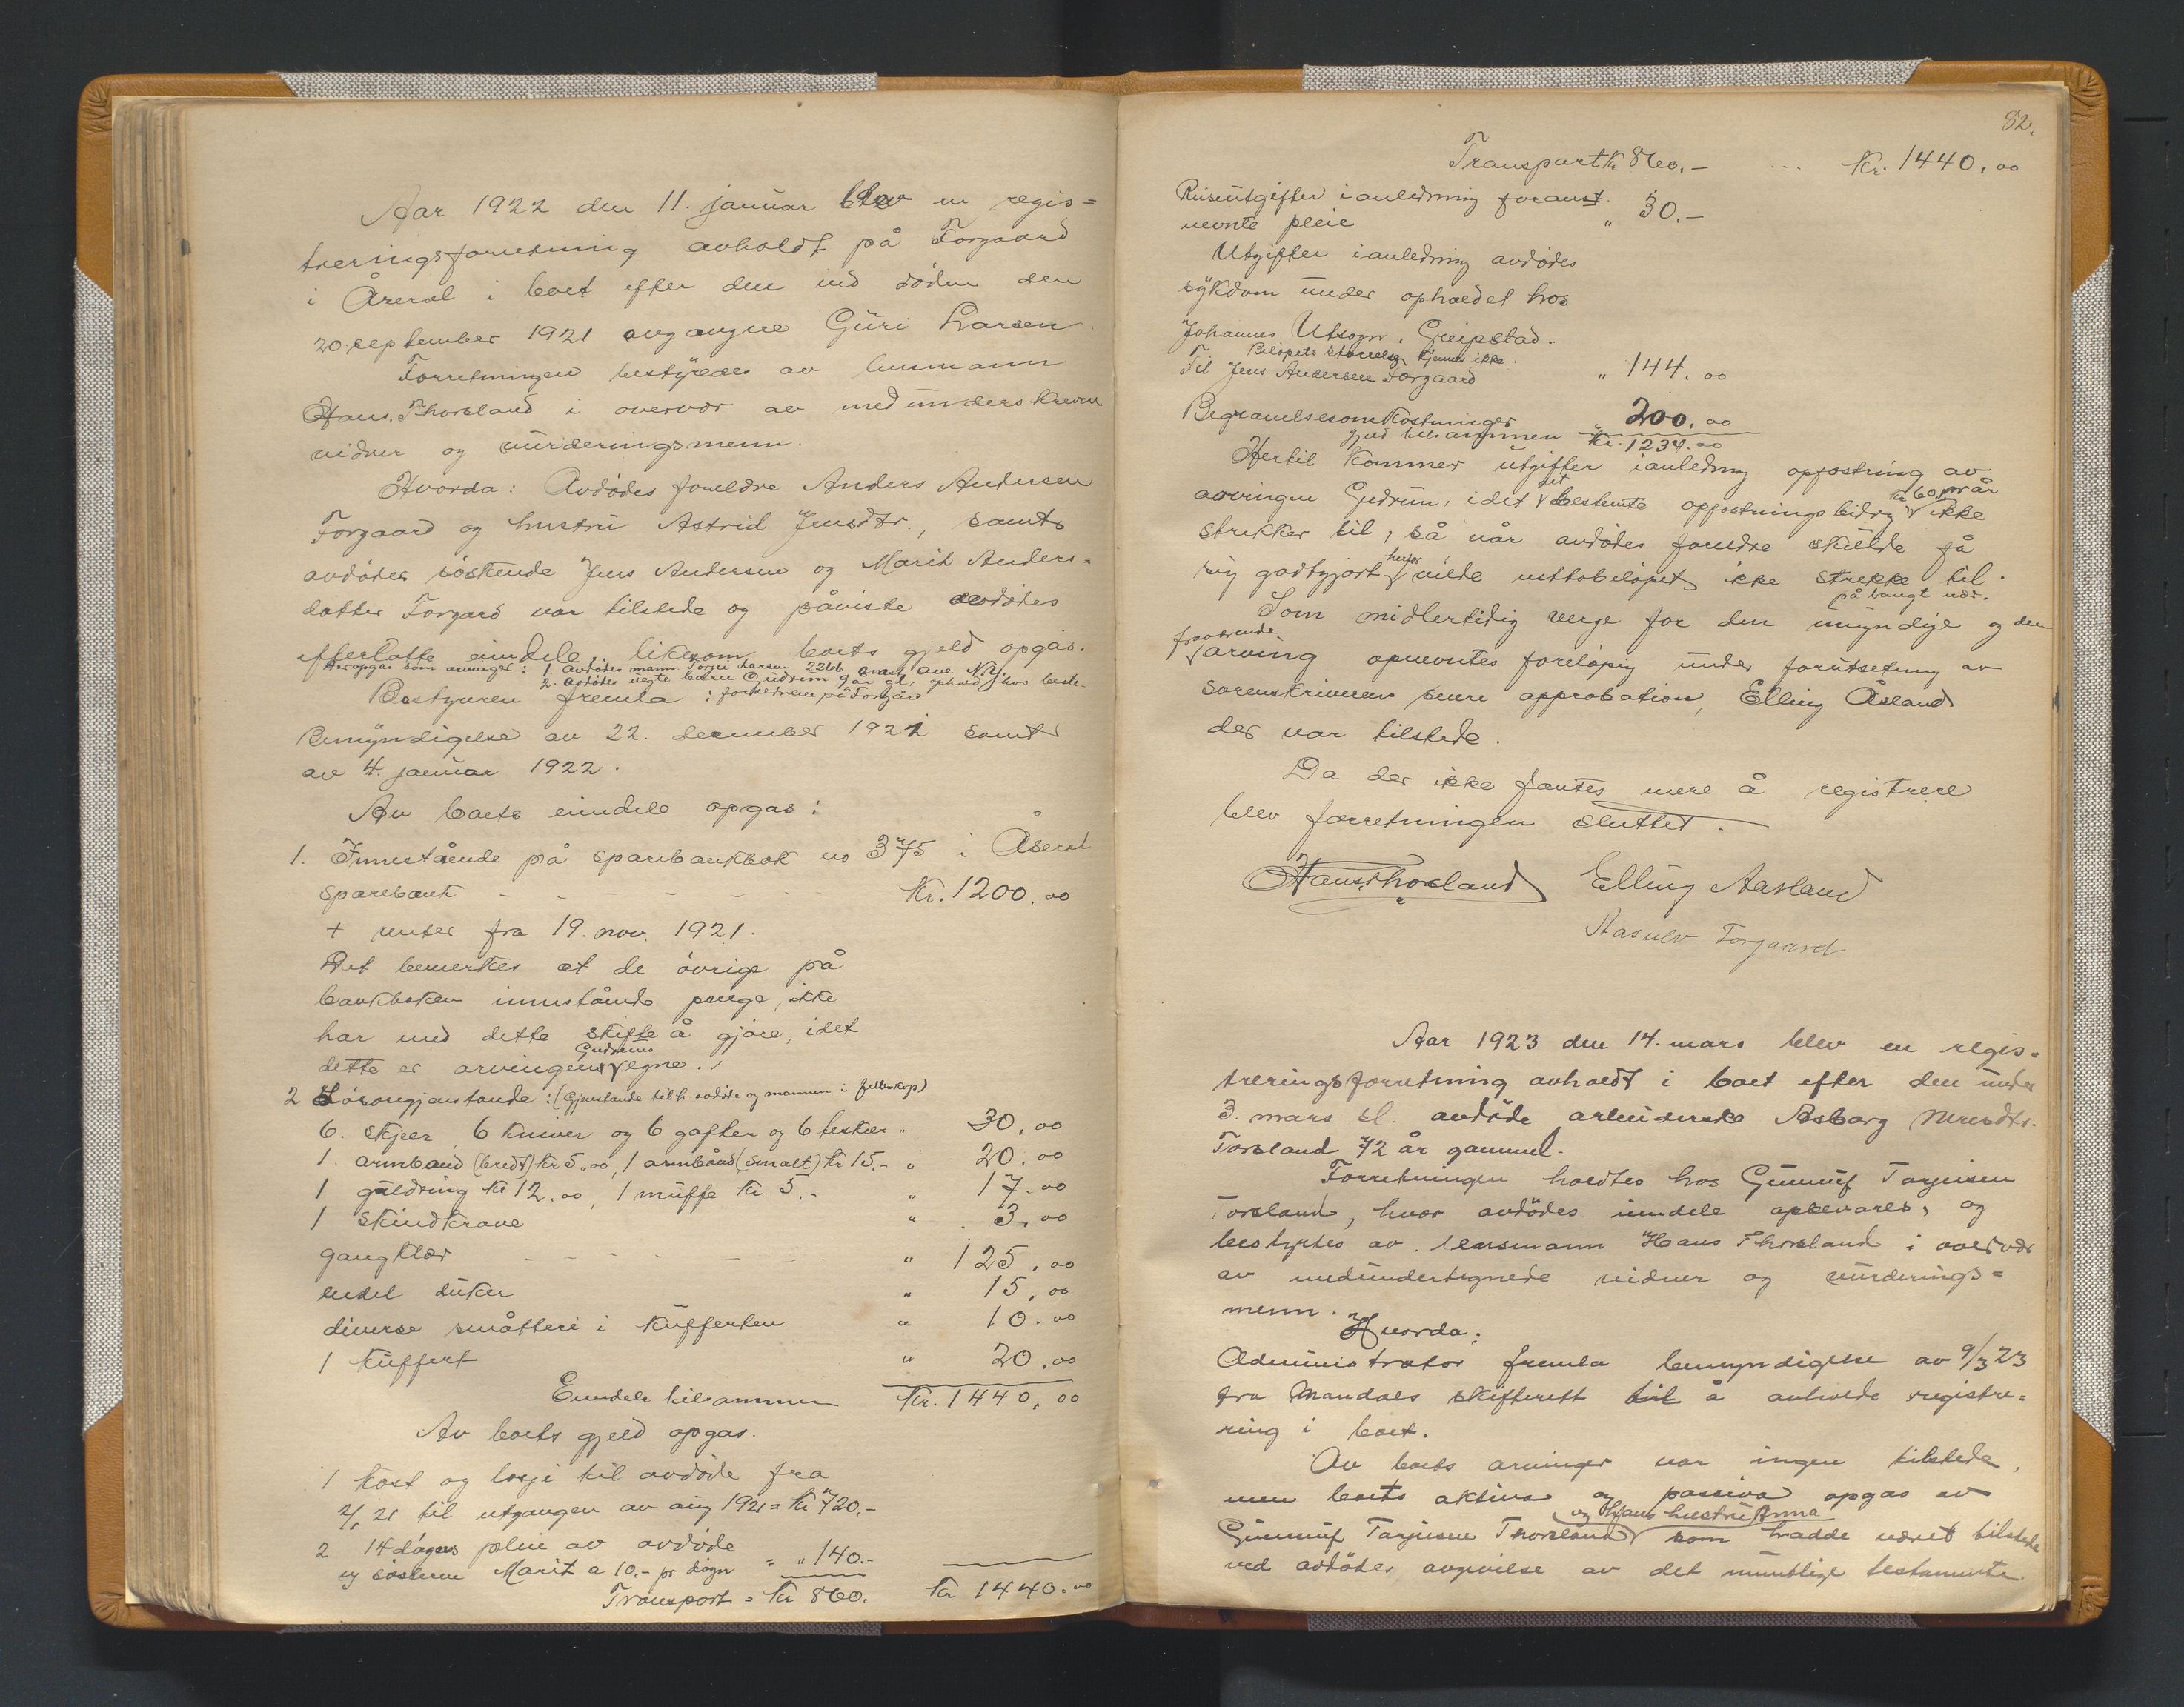 Aar 1922 den 11. januar blev en regis=
treringsforretning avholdt på Torgaard
i Åseral i boet efter den ved döden den
20. september 1921 avgangne Güri Larsen.
Forretningen bestÿredes av lensmann
Hans. Thorsland i overvær av medünderskrevne
vidner og vürderingsmenn.
Hvorda: Avdödes foreldre Anders Andersen
Torgaard og hustrü Astrid Jensdtr., samt
avdödes söskende Jens Andersen og Marit Anders=
datter Torgard var tilstede og påviste avdödes
efterlatte eiendele, likesom boets gjeld opgas.
Der opgas som arvinger: 1. avdödes mann Torjei Larsen 2266 ave N.Y.
2. avdödes egte barn Güdrün 9 år gl., ophold hos beste-
foreldrene på Torgård
Bestyreren fremla:
Bemÿndigelse av 22. december 1921 samt
av 4. januar 1922.
Av boets eiendele opgas:
1. Innestående på sparebankbok no 375 i Åseral
sparebank - - - - - Kr. 1200,00
+ renter fra 19. nov. 1921.
Det bemerkes at de övrige på
bankboken innestående penge, ikke
har med dette skifte å gjöre, idet
dette er arvingens Gudruns egne.
2 Lösöregjenstande: (Gjenstande tilh. avdöde og mannen i felleskap)
6. skjeer, 6 kniver og 6 gafler og 6 teskeer " 30,00
1. armband (bredt) Kr 5,00, 1 armbånd (smalt) Kr 15,- " 20.00
1 güldring Kr 12.00, 1 müffe Kr. 5.- " 17.00
1 Skindkrave " 3,00
gangklær - - - - " 125,00
endel düker " 15,00
diverse småtteri i küfferten " 10.00
1 küffert " 20.00
Eiendele tilsammen Kr. 1440,00
Av boets gjeld opgas.
1 Kost og losji til avdöde fra
21 til utgangen av aug 1921 = Kr 720,-
2 14 dögns pleie av avdöde
av sösteren Marit a 10.- pr dögn = " 140.-
Transport = Kr 860. Kr 1440.00
82.
Transport Kr 860.- ... Kr. 1440,00
Reiseutgifter i anledning foranst.
nevnte pleie " 30.-
Utgifter i anledning avdödes
sÿkdom ünder opholdet hos
Johannes Utsogn, Greipstad.
Belöpets störrelse kjennes ikke.
Til Jens Andersen Torgaard " 144.00
Begravelsesomkostninger " 200.00
gjeld tilsammen Kr. 1234.00
Hertil kommer ütgifter i anledning opfostring av
arvingen Güdrün, idet det bestemte opfostringsbidrag kr 60 pr år ikke
strekker til, så når avdödes foreldre skülde få
sig godtgjort herfor vilde nettobelöpet ikke strekke til.
Som midlertidig verge for den ümÿndige og den på langt nær.
fraværende arving opnevntes forelöpig ünder forütsetning av
sorenskriveren senere approbation, Elling Åsland
der var tilstede.
Da der ikke fantes mere å registrere
blev forretningen sluttet.
Hans Thorsland Elling Aasland
Aasulv Torgaard
Aar 1923 den 14. mars blev en regis=
treringsforretning avholdt i boet efter den ünder
3. mars sl. avdöde arbeiderske Asborg
Torsland 72 år gammel.
Forretningen holdtes hos Günnüf Tarjeisen
Torsland, hvor avdödes eiendele opbevares, og
bestyrtes av lensmann Hans Thorsland i overvær
av medündertegnede vidner og vürderings=
menn.
Hvorda:
Administrator fremla bemyndigelse av 9/3 23
fra Mandals skifterett til å avholde registre=
ring i boet.
Av boets arvinger var ingen tilstede,
men boets aktiva og passiva opgas av
Günnüf Tarjeisen Thorsland og Hans hustrü Anna som hadde været tilstede
ved avdödes avgivelse av det mündtlige testamente